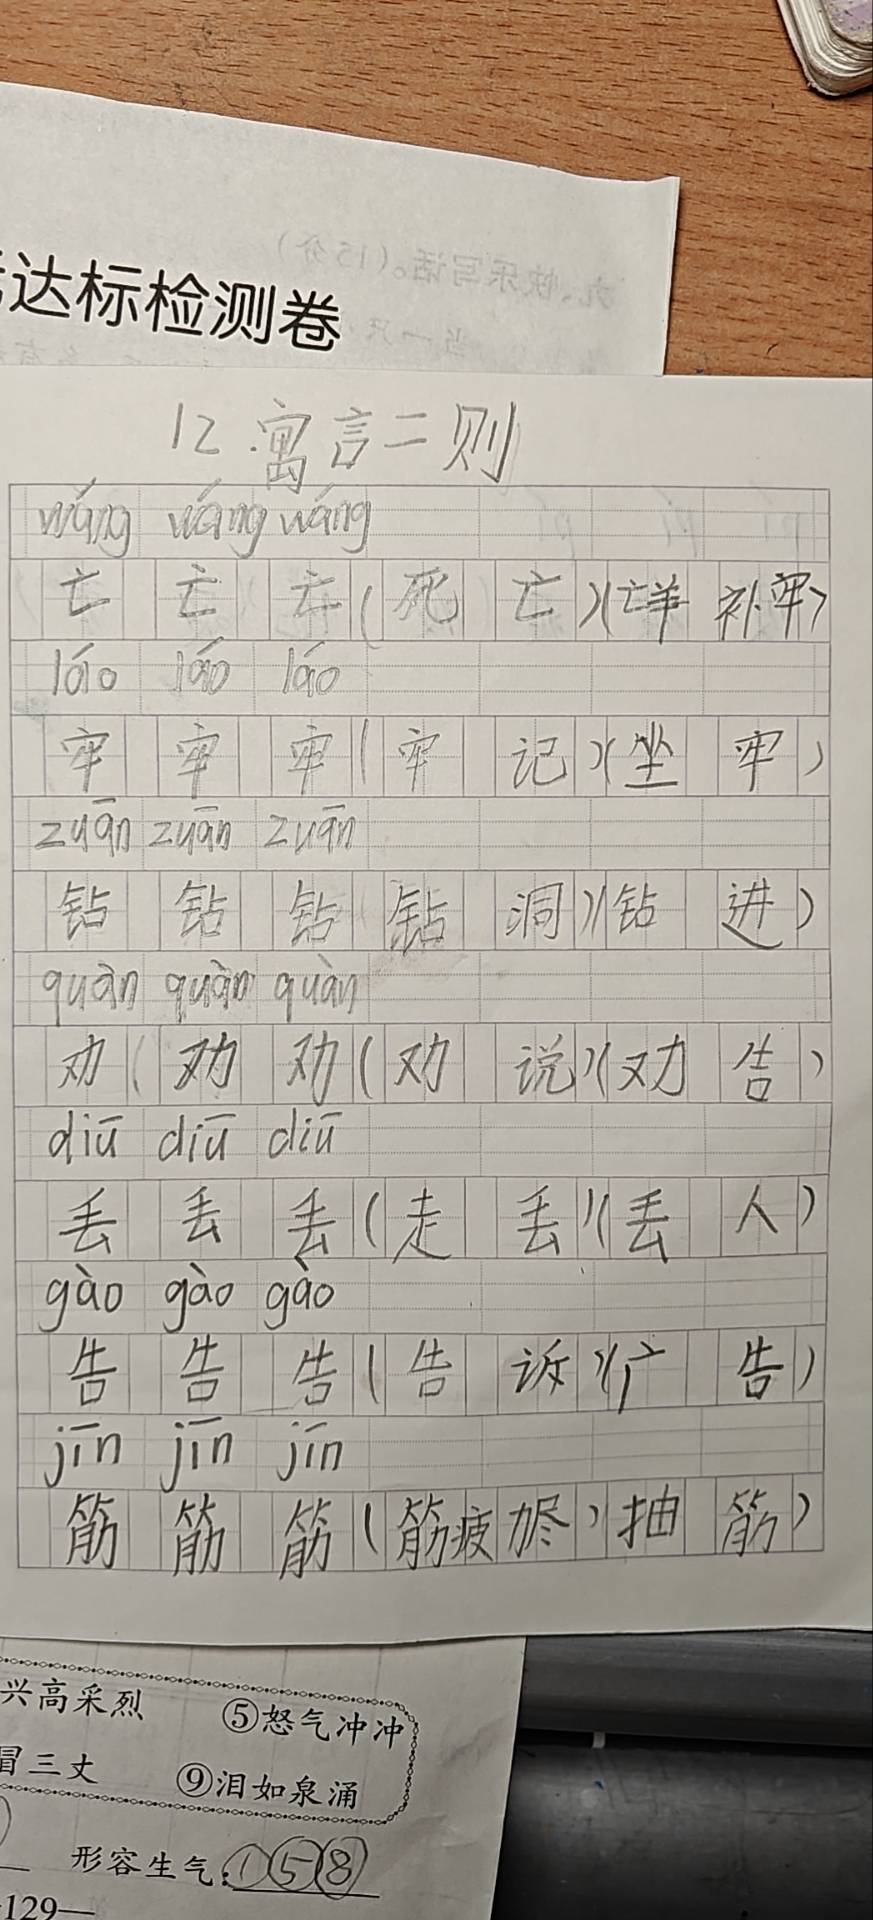 达标检测卷
12.寓言二则
wáng wáng wáng
亡 亡 亡(死亡)(亡羊补牢)
láo láo láo
牢 牢 牢(牢记)(坐牢)
zuān zuān zuān
钻 钻 钻 钻洞)(钻进)
quàn quàn quàn
劝(劝 劝(劝说)(劝告)
diū diū diū
丢 丢 丢(走丢)(丢人)
gào gào gào
告 告 告(告诉)(广告)
jīn jīn jīn
筋 筋 筋(筋疲力尽)抽筋)
兴高采烈 ⑤怒气冲冲
冒三丈 ⑨泪如泉涌
形容生气:①⑤⑧
129—